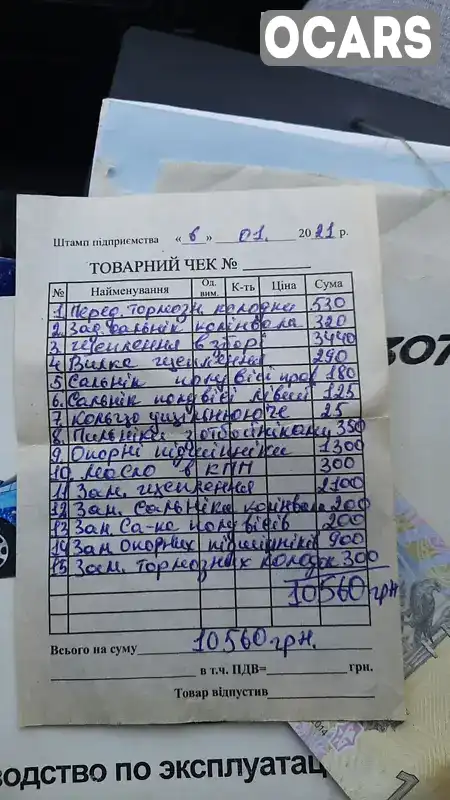 OCARS
Штамп підприємства « 6 » 01. 2021 р.
ТОВАРНИЙ ЧЕК №
№ Найменування Од. вим. К-ть Ціна Сума
1. Перед. тормозн. колодки 530
2. Зад. сальнік колінвала 320
3. щеплення в зборі 3490
4. Вилка щеплення 290
5. Сальнік полувісі прав 180
6. Сальнік полувісі лівий 125
7. Кольцо 25
8. Пильніки з отбойніками 350
9. Опорні підшипніки 1300
10. Масло в КПП 300
11. Зам. щеплення 2100
12. Зам. Сальніка колінвала 200
13. Зам. Са-ка полувісів 200
14. Зам Опорних підшипніків 900
15. Зам. тормозных колодок 300
10560 грн
Всього на суму 10560 грн.
в т.ч. ПДВ= грн.
Товар відпустив
307
водство по эксплуатац